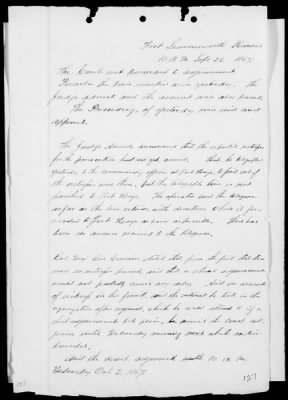 Fort Leavenworth Kansas
10 A.M. Sept 28. 1867
The Court met pursuant to adjournment
Present the same members as on yesterday. The
Judge Advocate and the accused were also present.
The Proceedings of yesterday were read and
approved.
The Judge Advocate announced that the
for the prosecution had not yet arrived. That he telegraphed
yesterday to the Commanding officer at Fort Hays to find out if
the witnesses were there, but the telegraph line is not
finished to Fort Hays. The operator sent the telegram
as far as the line with directions to have it for-
warded to Fort Hays as soon as possible. There has
been no answer received to the telegram.
stated that from the fact that there
were no witnesses present and that a short adjournment
would not probably cause any delay. And on account
of sickness in his family, and the interest he took in the
organization of his regiment, which he could attend to if a
short adjournment took place, he moved the Court ad-
journ until Wednesday morning next which motion
prevailed.
And the Court adjourned until 10 A.M.
Wednesday Oct 2. 1867.
127